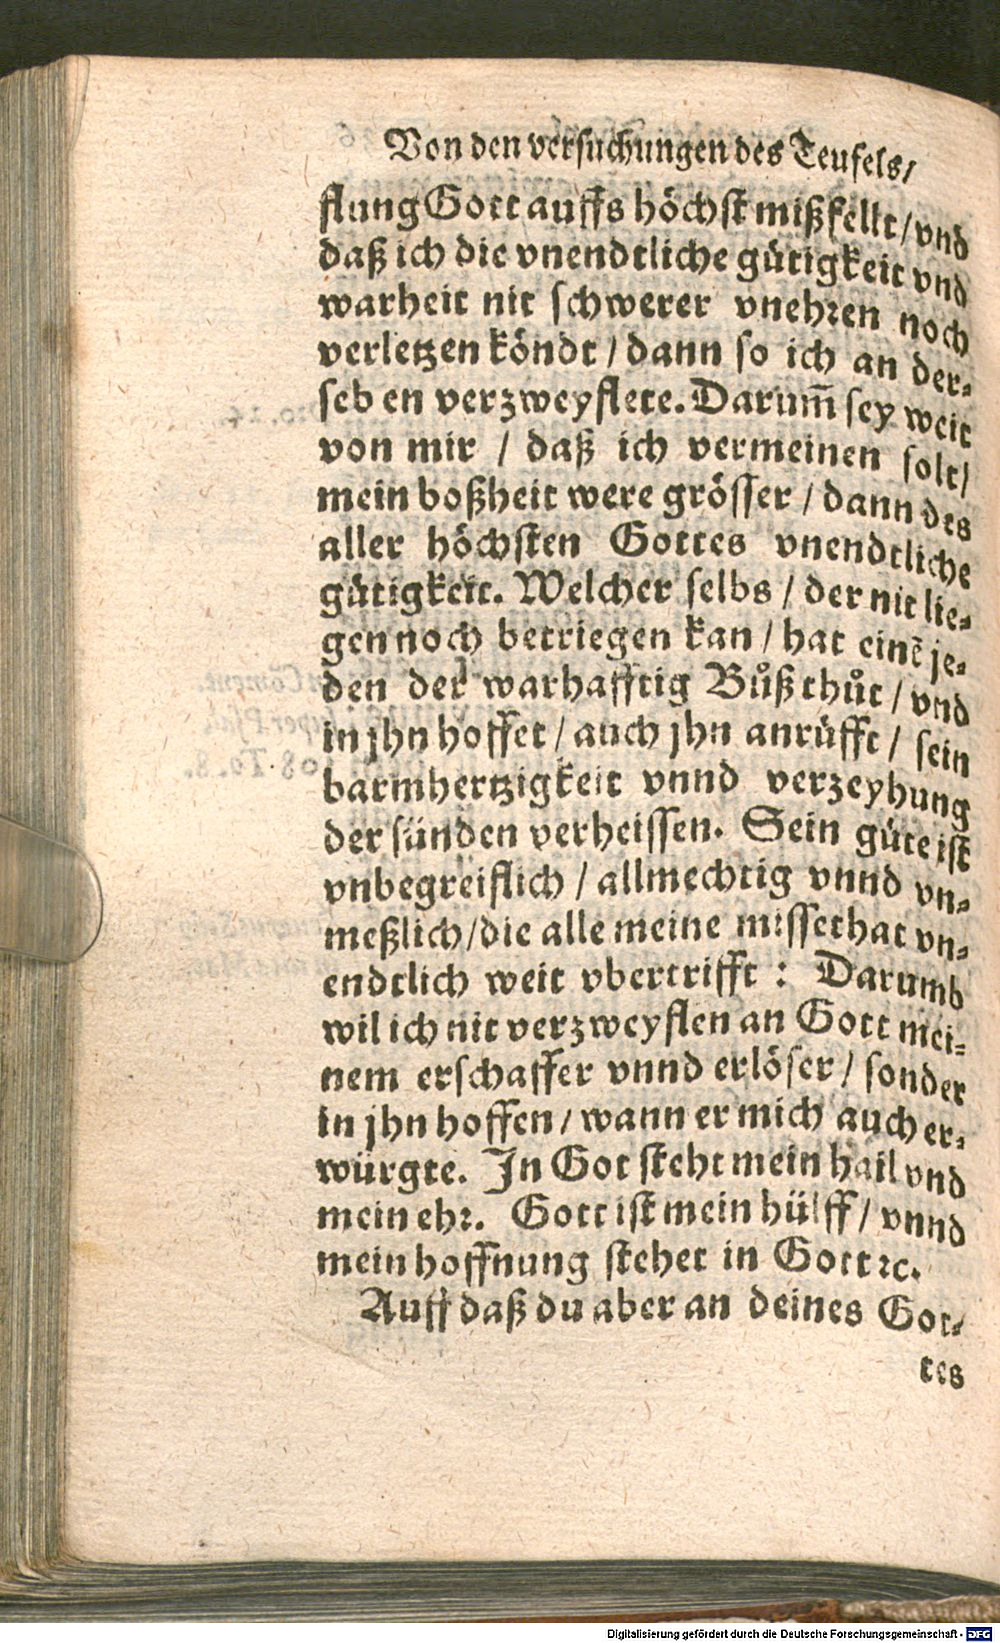 Von den versuchungen des Teufels/
flung Gott auffs höchst mißfellt/vnd
daß ich die vnendtliche gütigkeit vnd
warheit nit schwerer vnehren noch
verletzen köndt/dann so ich an der-
selben verzweyflete. Darum̃ sey weit
von mir / daß ich vermeinen solt/
mein boßheit were grösser / dann des
aller höchsten Gottes vnendtliche
gütigkeit. Welcher selbs / der nit lie-
gen noch betriegen kan / hat einẽ je-
den der warhafftig Bůß thůt / vnd
in jhn hoffet / auch jhn anrüfft / sein
barmhertzigkeit vnnd verzeyhung
der sünden verheissen. Sein güte ist
vnbegreiflich / allmechtig vnnd vn-
meßlich/die alle meine missethat vn-
endtlich weit vbertrifft : Darumb
wil ich nit verzweyflen an Gott mei-
nem erschaffer vnnd erlöser / sonder
in jhn hoffen/wann er mich auch er-
würgte. In Got steht mein hail vnd
mein ehr. Gott ist mein hülff / vnnd
mein hoffnung stehet in Gott ꝛc.
Auff daß du aber an deines Got-
tes
Digitalisierung gefördert durch die Deutsche Forschungsgemeinschaft - DFG